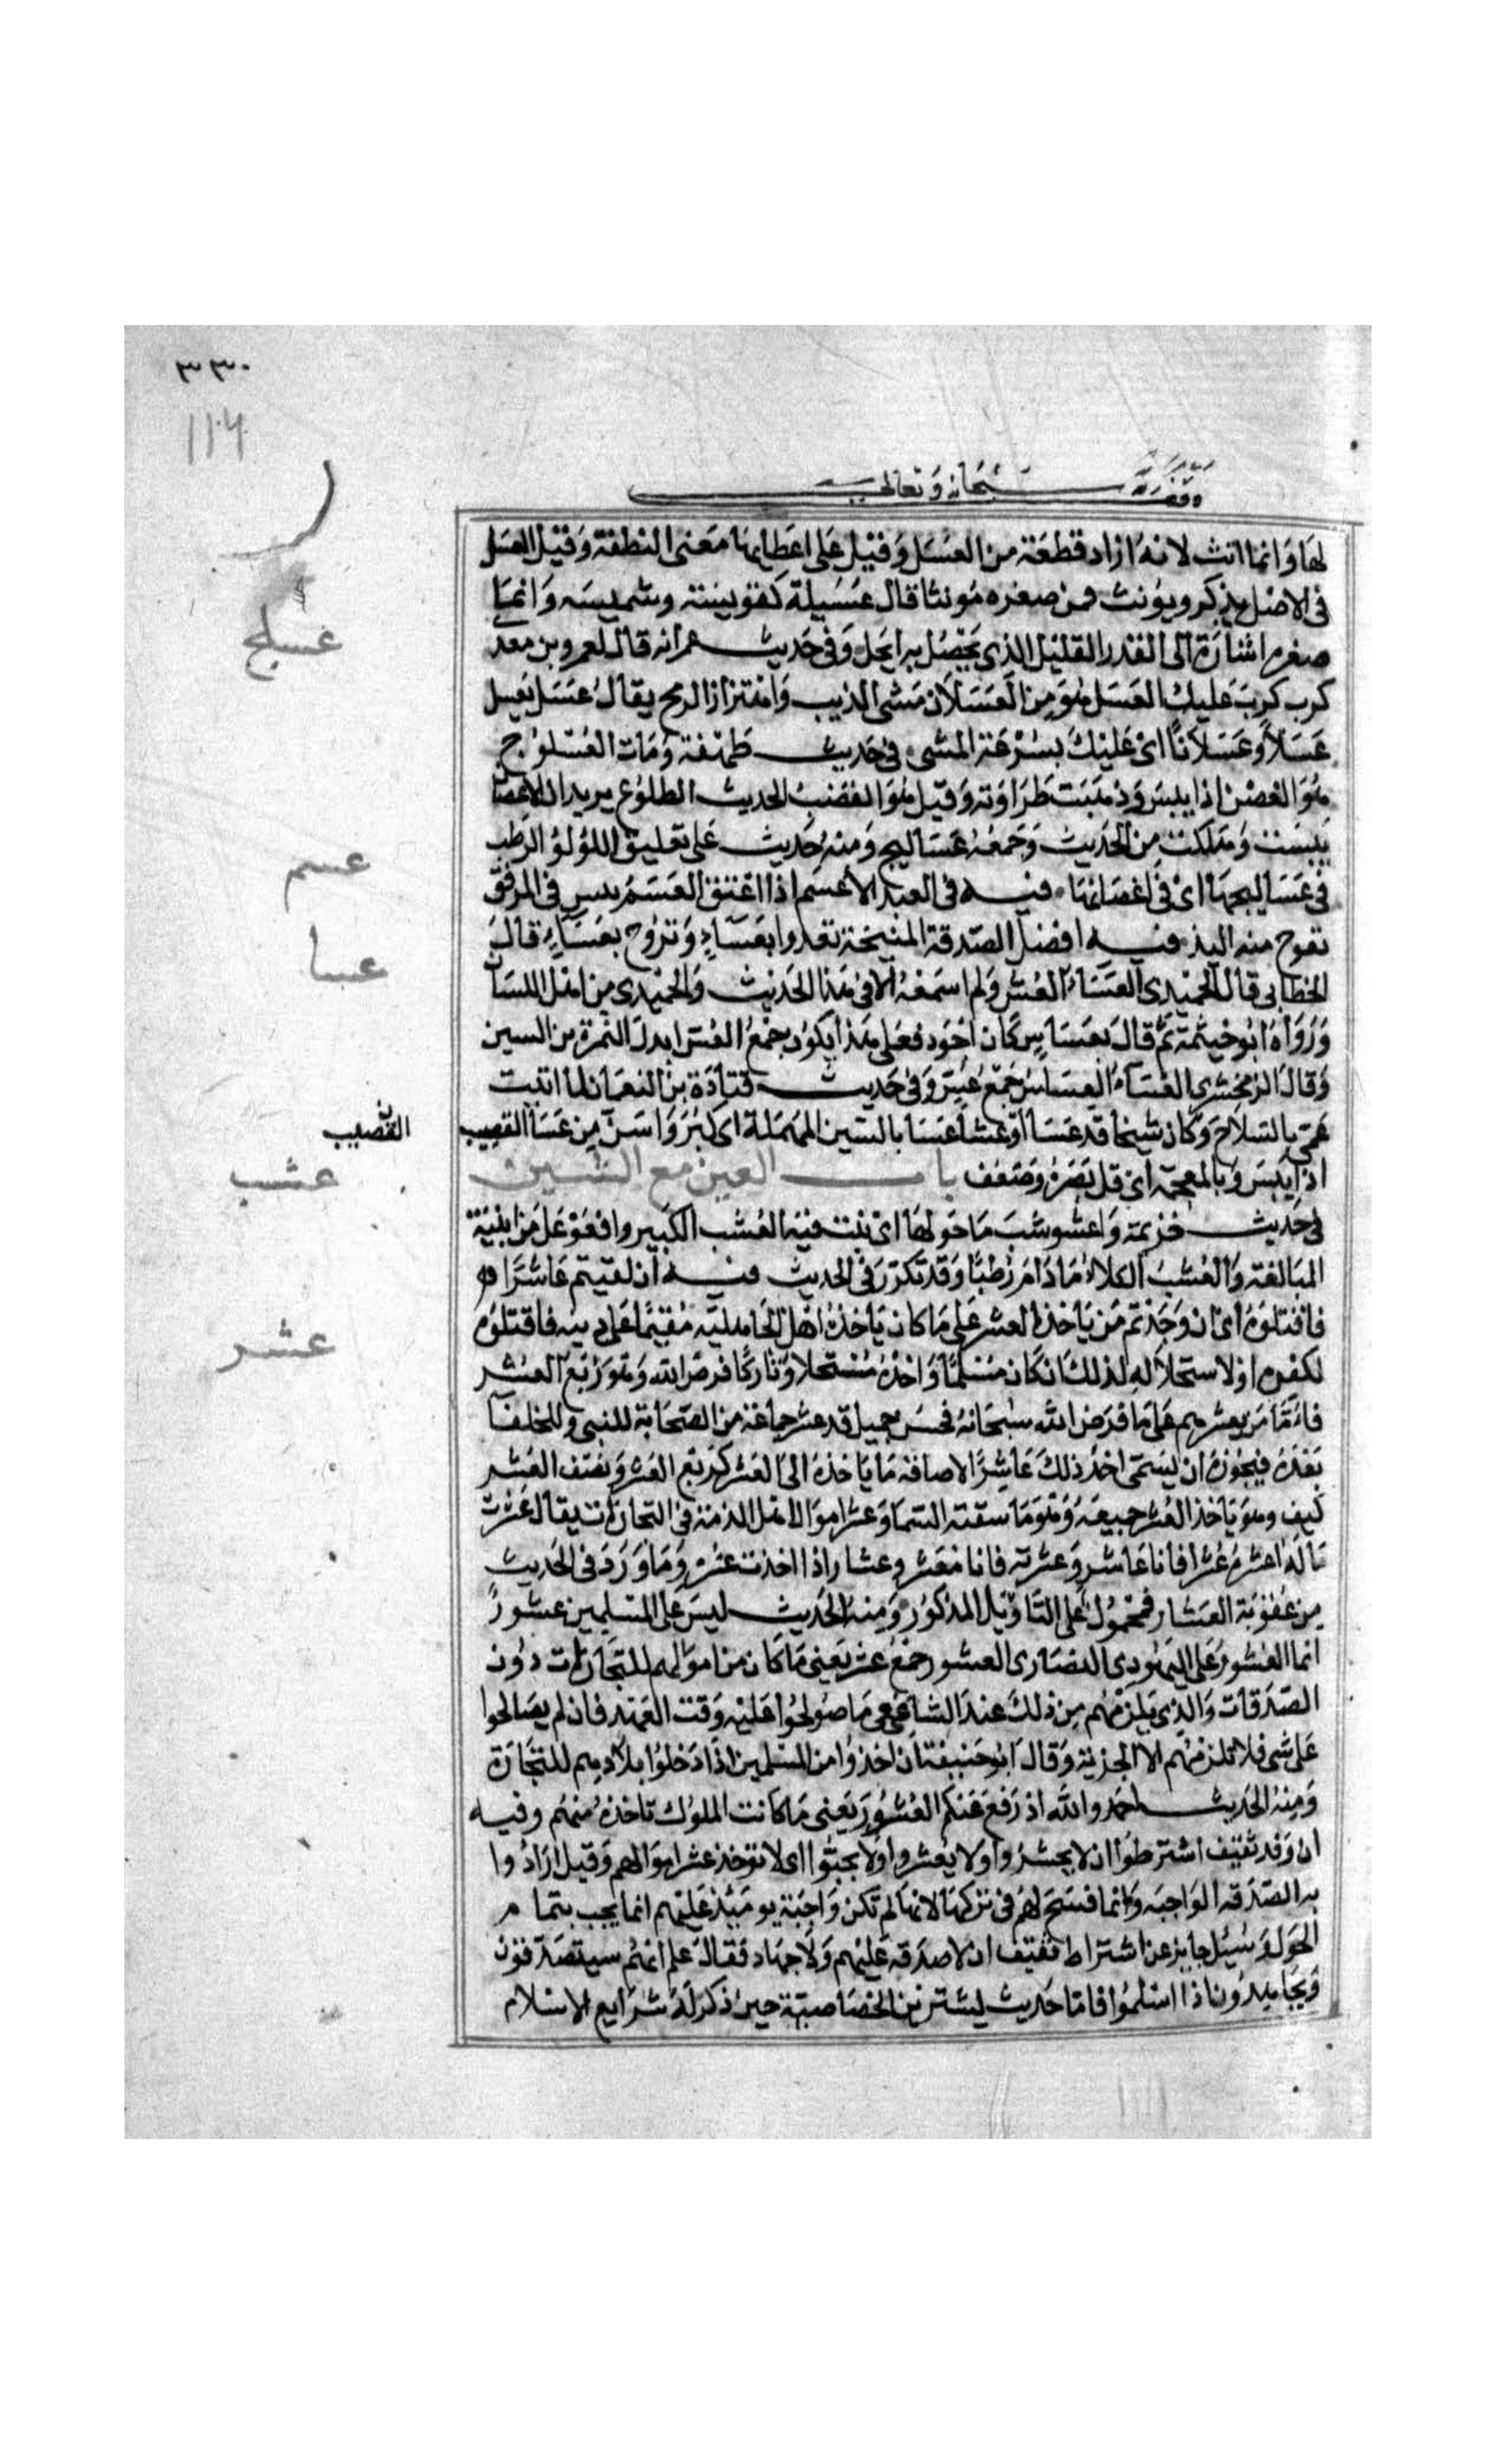 ٣٣٠
١١٦
وقف لله سبحانه وتعالى
لها وانما انث لانه اراد قطعة من العسل وقيل على اعطايها معنى النطفة وقيل العسل
فى الاصل يذكر ويونث فمن صغره مونثا قال عسيلة كقويسة وشميسه وانما
صغره اشارة الى القدر القليل الذى يحصل به الحل وفى حديث عمر انه قال لعمرو بن معد
عسلج
كرب كرب عليك العسل هو من العسلان مشى الذيب واهتزاز الرمح يقال عسل يعسل
عسلا وعسلانا اى عليك بسرعة المشى فى حديث طهفة ومات العسلوج
هو الغصن اذا يبس وذهبت طراوته وقيل هو القضيب الحديث الطلوع يريد ان الاغصان
يبست وهلكت من الجدب وجمعه عساليج ومنه حديث على تعليق اللؤلؤ الرطب
عسم
فى عساليجها اى فى اغصانها فيه فى العبد الاعسم اذا اعتق العسم يبس فى المرفق
تعوج منه اليد فيه افضل الصدقة المنيحة تغدوا بعساء وتروح بعساء قال
عسا
الخطابى قال الحميدى العساء العس ولم اسمعه الا فى هذا الحديث والحميدى من اهل اللسان
ورواه ابو خيثمة ثم قال بعساس كان اجود فعلى هذا يكون جمع العس ابدل الهمزة من السين
وقال الزمخشرى العساء العساس جمع عس وفى حديث قتادة بن النعمان لما اتيت
عمى بالسلاح وكان شيخا قد عسا او عشا عسا بالسين المهملة اى كبر واسن من عسا القضيب
القضيب
اذا يبس وبالمعجمة اى قل بصره وضعف باب العين مع الشين
عشب
فى حديث خزيمة واعشوشب ما حولها اى نبت فيه العشب الكبير وافعوعل من ابنية
المبالغة والعشب الكلاء ما دام رطبا وقد تكرر فى الحديث فيه ان لقيتم عاشرا
عشر
فاقتلوه اى ان وجدتم من ياخذ العشر على ما كان ياخذه اهل الجاهلية مقيما على دينه فاقتلوه
لكفره او لاستحلاله لذلك ان كان مسلما واخذه مستحلا وتاركا فرض الله وهو ربع العشر
فاما من يعشرهم على ما فرض الله سبحانه فحسن جميل قد عشر جماعة من الصحابة للنبى وللخلفا
بعده فيجوز ان يسمى اخذ ذلك عاشرا لاضافة ما ياخذه الى العشر كربع العشر ونصف العشر
كيف وهو ياخذ العشر جميعه وهو ما سقته السما وعشر اموال اهل الذمة فى التجارات يقال عشرت
ماله اعشره عشرا فانا عاشر وعشرته فانا معشر وعشار اذا اخذت عشره وما ورد فى الحديث
من عقوبة العشار فمحمول على التاويل المذكور ومنه الحديث ليس على المسلمين عشور
انما العشور على اليهود والنصارى العشور جمع عشر يعنى ما كان من اموالهم للتجارات دون
الصدقات والذى يلزمهم من ذلك عند الشافعى ما صولحوا عليه وقت العهد فان لم يصالحوا
على شى فلا تلزمهم الا الجزية وقال ابو حنيفة ان اخذوا من المسلمين اذا دخلوا بلادهم للتجارة
ومنه الحديث احمدوا الله اذ رفع عنكم العشور يعنى ما كانت الملوك تاخذه منهم وفيه
ان وفد ثقيف اشترطوا ان لا يحشروا ولا يعشروا ولا يجبوا اى لا توخذ عشر اموالهم وقيل ارادوا
به الصدقة الواجبه وانما فسح لهم فى تركها لانها لم تكن واجبة يوميذ عليهم انما يجب بتمام
الحول وسئل جابر عن اشتراط ثقيف ان لا صدقة عليهم ولا جهاد فقال علم انهم سيتصدقون
ويجاهدون اذا اسلموا فاما حديث بشير بن الخصاصية حين ذكر له شرايع الاسلام